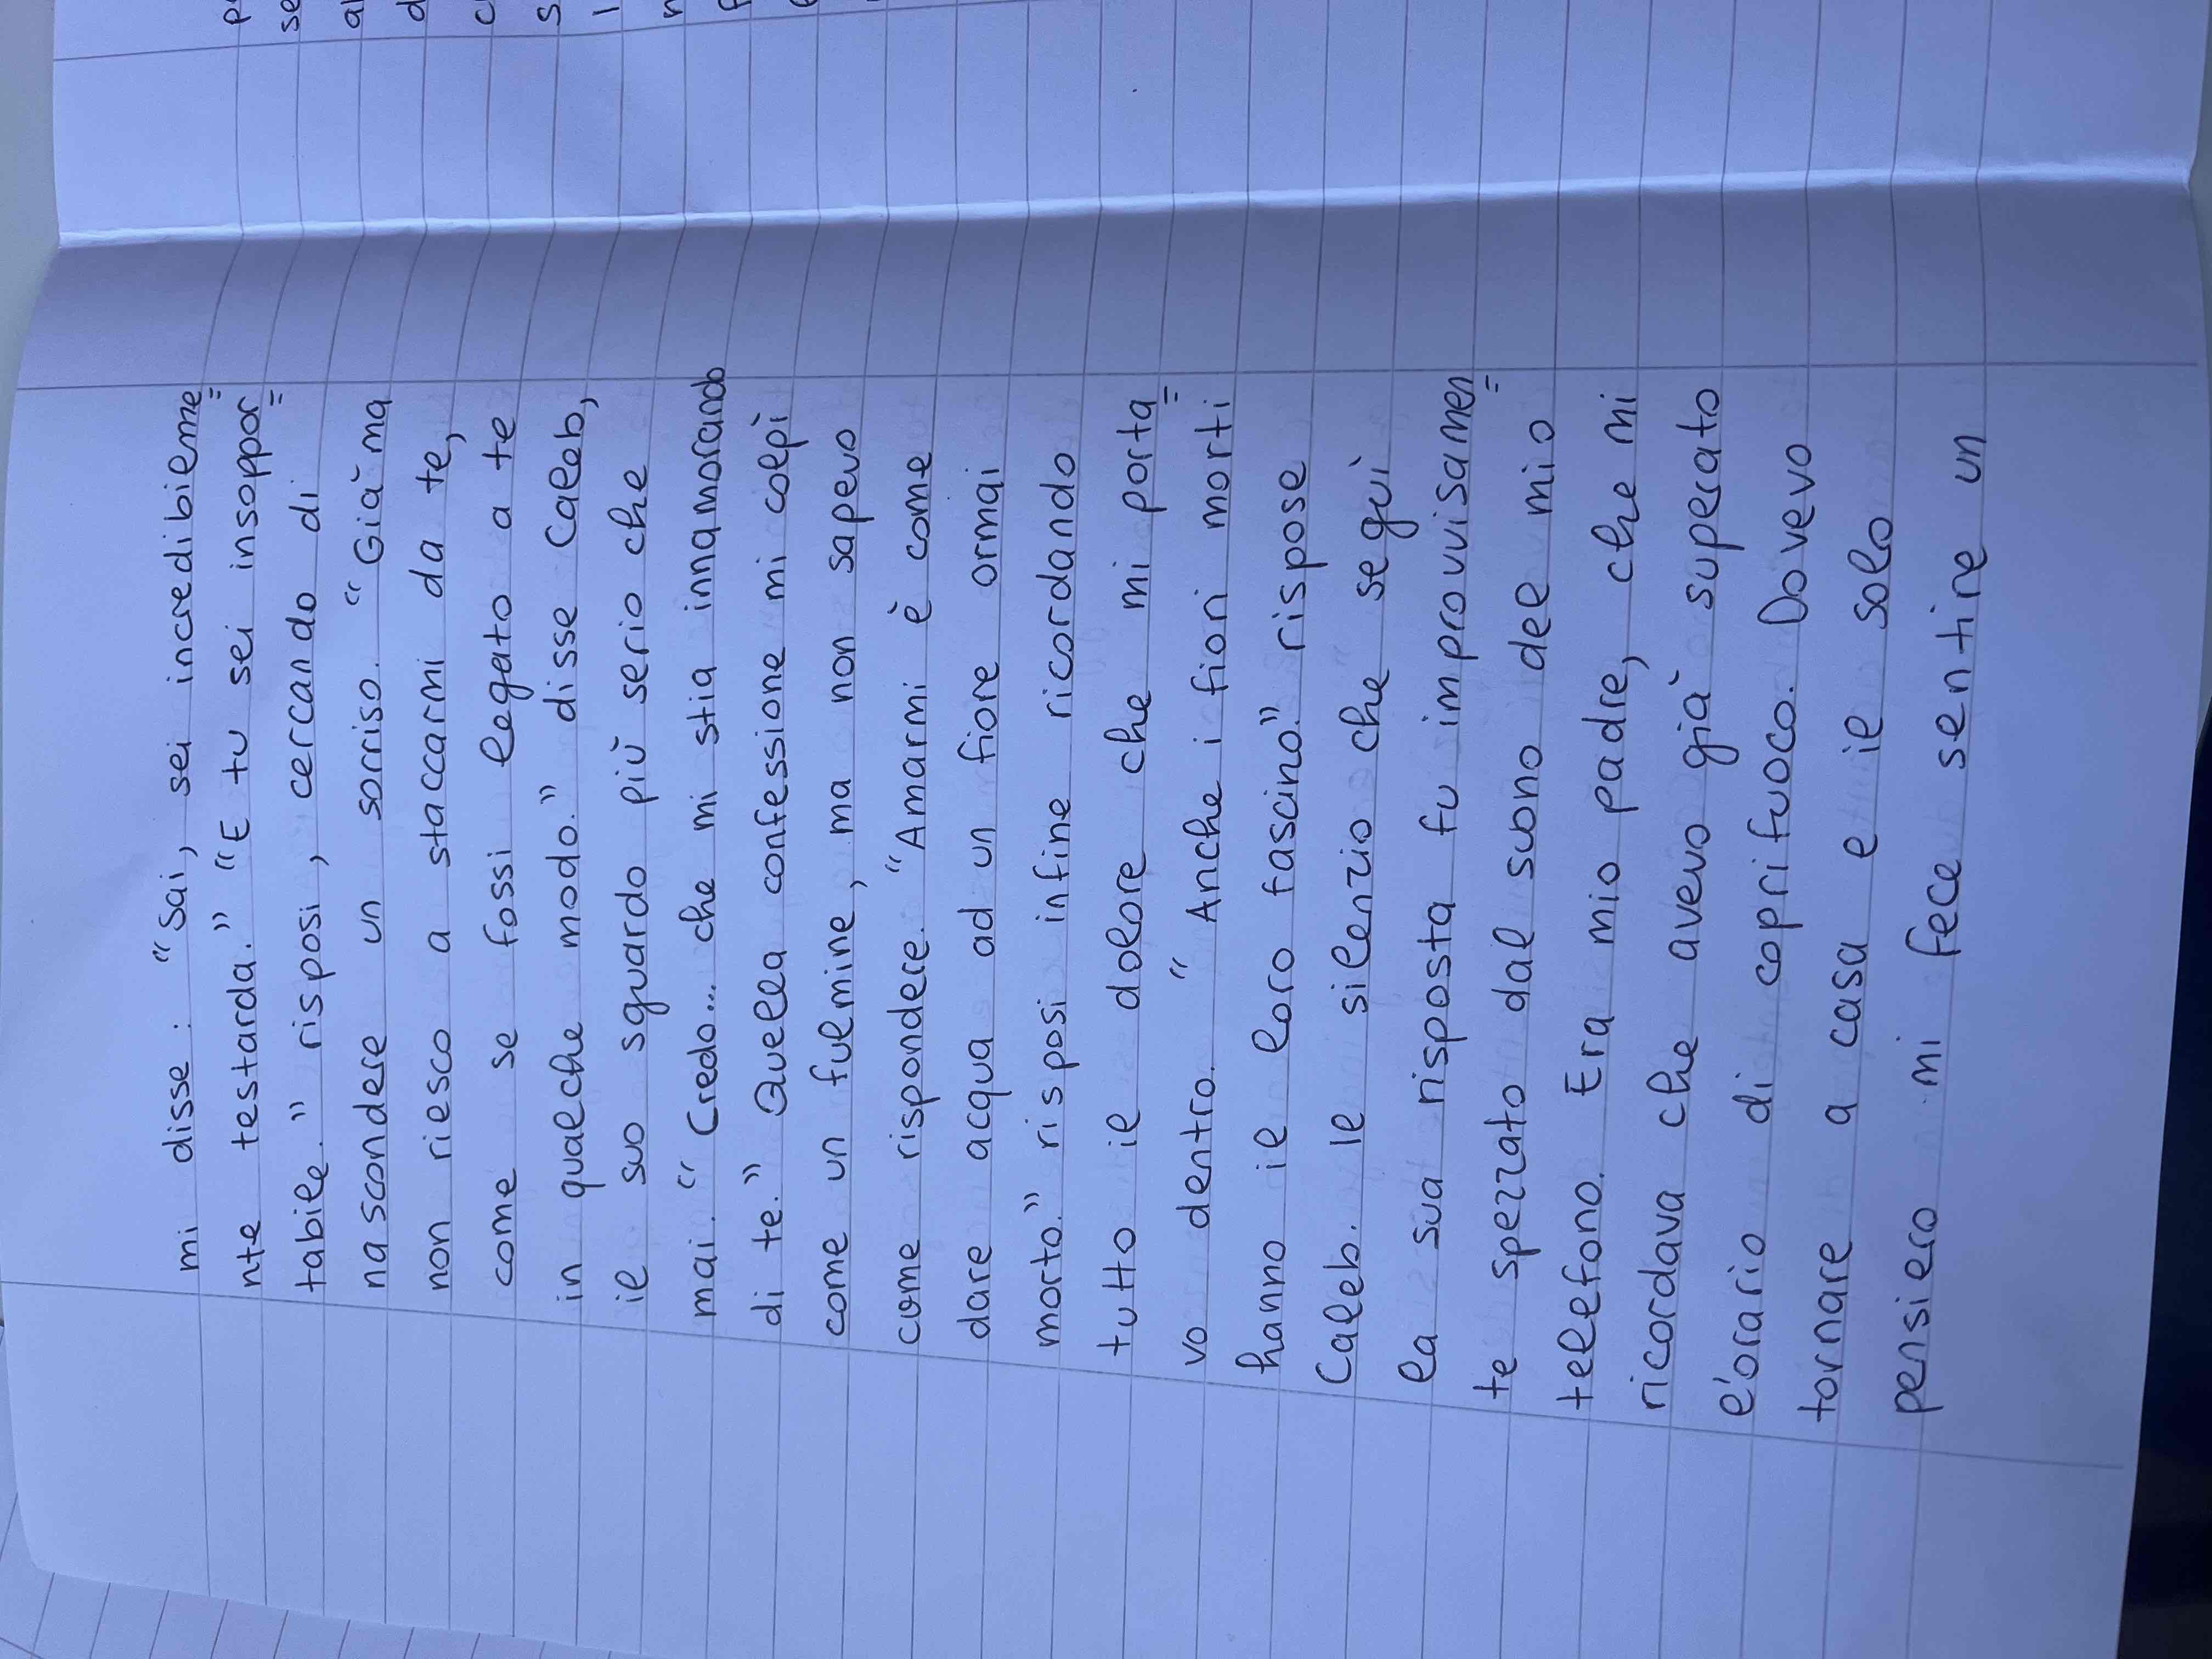 mi disse: "Sai, sei incredibilme=
nte testarda." "E tu sei insoppor=
tabile." risposi, cercando di
nascondere un sorriso. "Già ma
non riesco a staccarmi da te,
come se fossi legato a te
in qualche modo." disse Caleb,
il suo sguardo più serio che
mai. "Credo... che mi stia innamorando
di te." Quella confessione mi colpì
come un fulmine, ma non sapevo
come rispondere. "Amarmi è come
dare acqua ad un fiore ormai
morto." risposi infine ricordando
tutto il dolore che mi porta=
vo dentro. "Anche i fiori morti
hanno il loro fascino." rispose
Caleb. Il silenzio che seguì
la sua risposta fu improvvisamen=
te spezzato dal suono del mio
telefono. Era mio padre, che mi
ricordava che avevo già superato
l'orario di coprifuoco. Dovevo
tornare a casa e il solo
pensiero mi fece sentire un